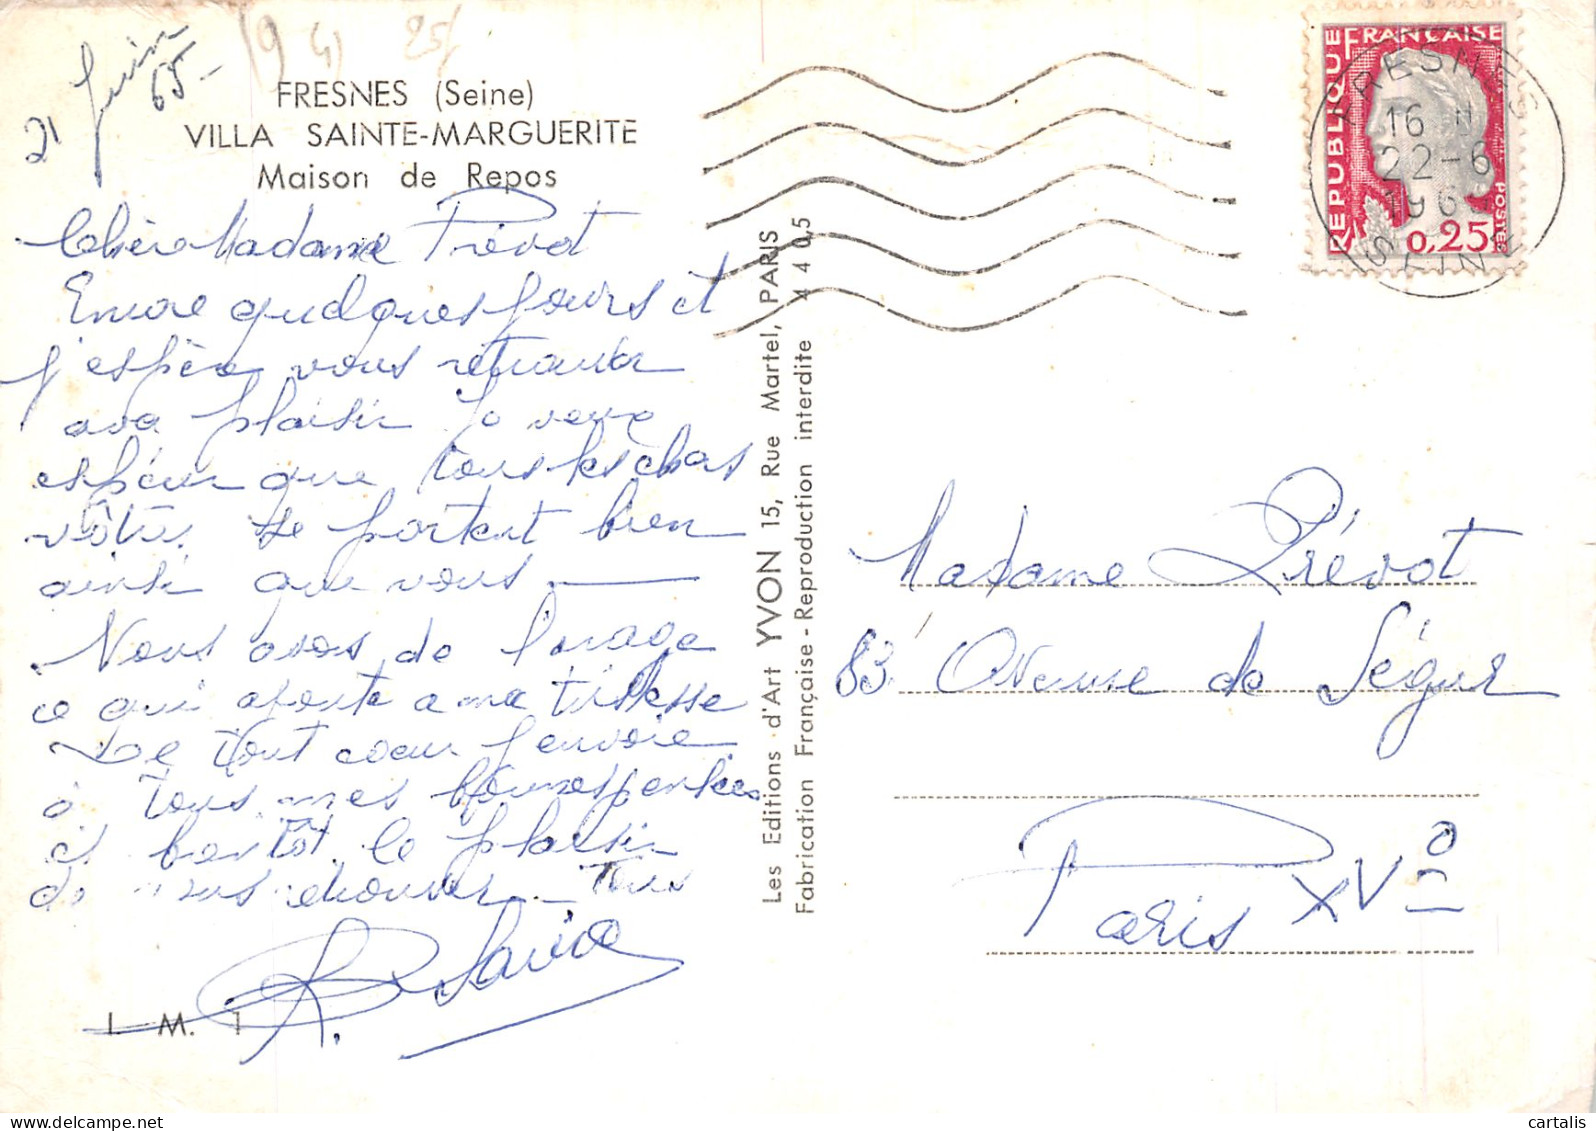 21 Juin 65
(94) 25/
FRESNES (Seine)
VILLA SAINTE-MARGUERITE
Maison de Repos
Chère Madame Prévot
Encore quelques jours et
j'espère vous retrouver
avec plaisir Je veux
espérer que tous les chers
vôtres se portent bien
ainsi que vous
Nous avons de l'orage
ce qui ajoute a ma tristesse
De tout coeur j'envoie
à tous mes bonnes pensées
et bientôt le plaisir
de vous retrouver
I. M. 1
Les Editions d'Art YVON 15, Rue Martel, PARIS
Fabrication Française - Reproduction interdite 4 4 05
RÉPUBLIQUE FRANÇAISE
POSTES
0,25
FRESNES
16 H
22-6
1965
SEINE
Madame Prévot
83 Avenue de Ségur
Paris XVo
cartalis